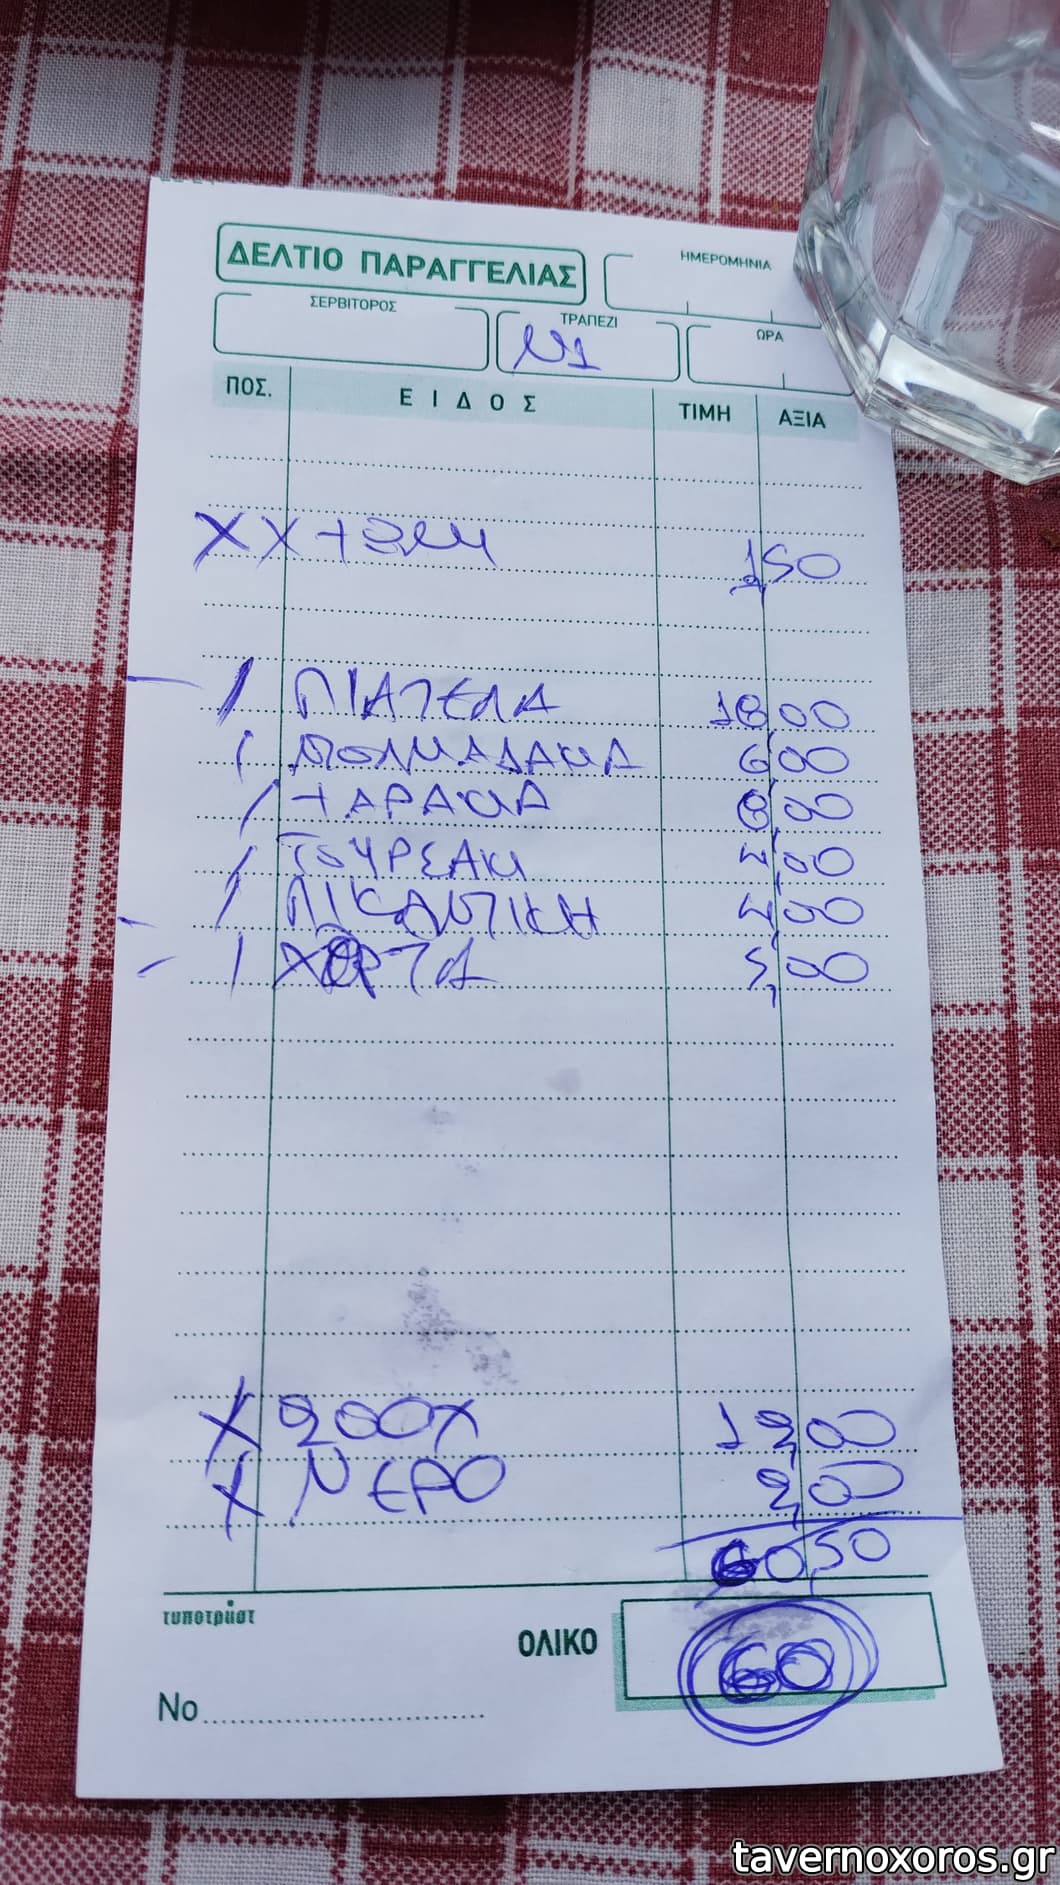 ΔΕΛΤΙΟ ΠΑΡΑΓΓΕΛΙΑΣ
ΗΜΕΡΟΜΗΝΙΑ
ΣΕΡΒΙΤΟΡΟΣ
ΤΡΑΠΕΖΙ
ΩΡΑ
Ν1
ΠΟΣ. ΕΙΔΟΣ ΤΙΜΗ ΑΞΙΑ
1,50
/ ΠΙΑΤΕΛΑ 18,00
/ ΝΤΟΛΜΑΔΑΚΙΑ 6,00
/ ΤΑΡΑΜΑ 8,00
/ 4,00
/ ΠΙΚΑΝΤΙΚΗ 4,00
/ ΧΟΡΤΑ 5,00
Χ 200Χ 12,00
Χ ΝΕΡΟ 2,00
60,50
τυποτράστ
ΟΛΙΚΟ 60
Νο
tavernoxoros.gr